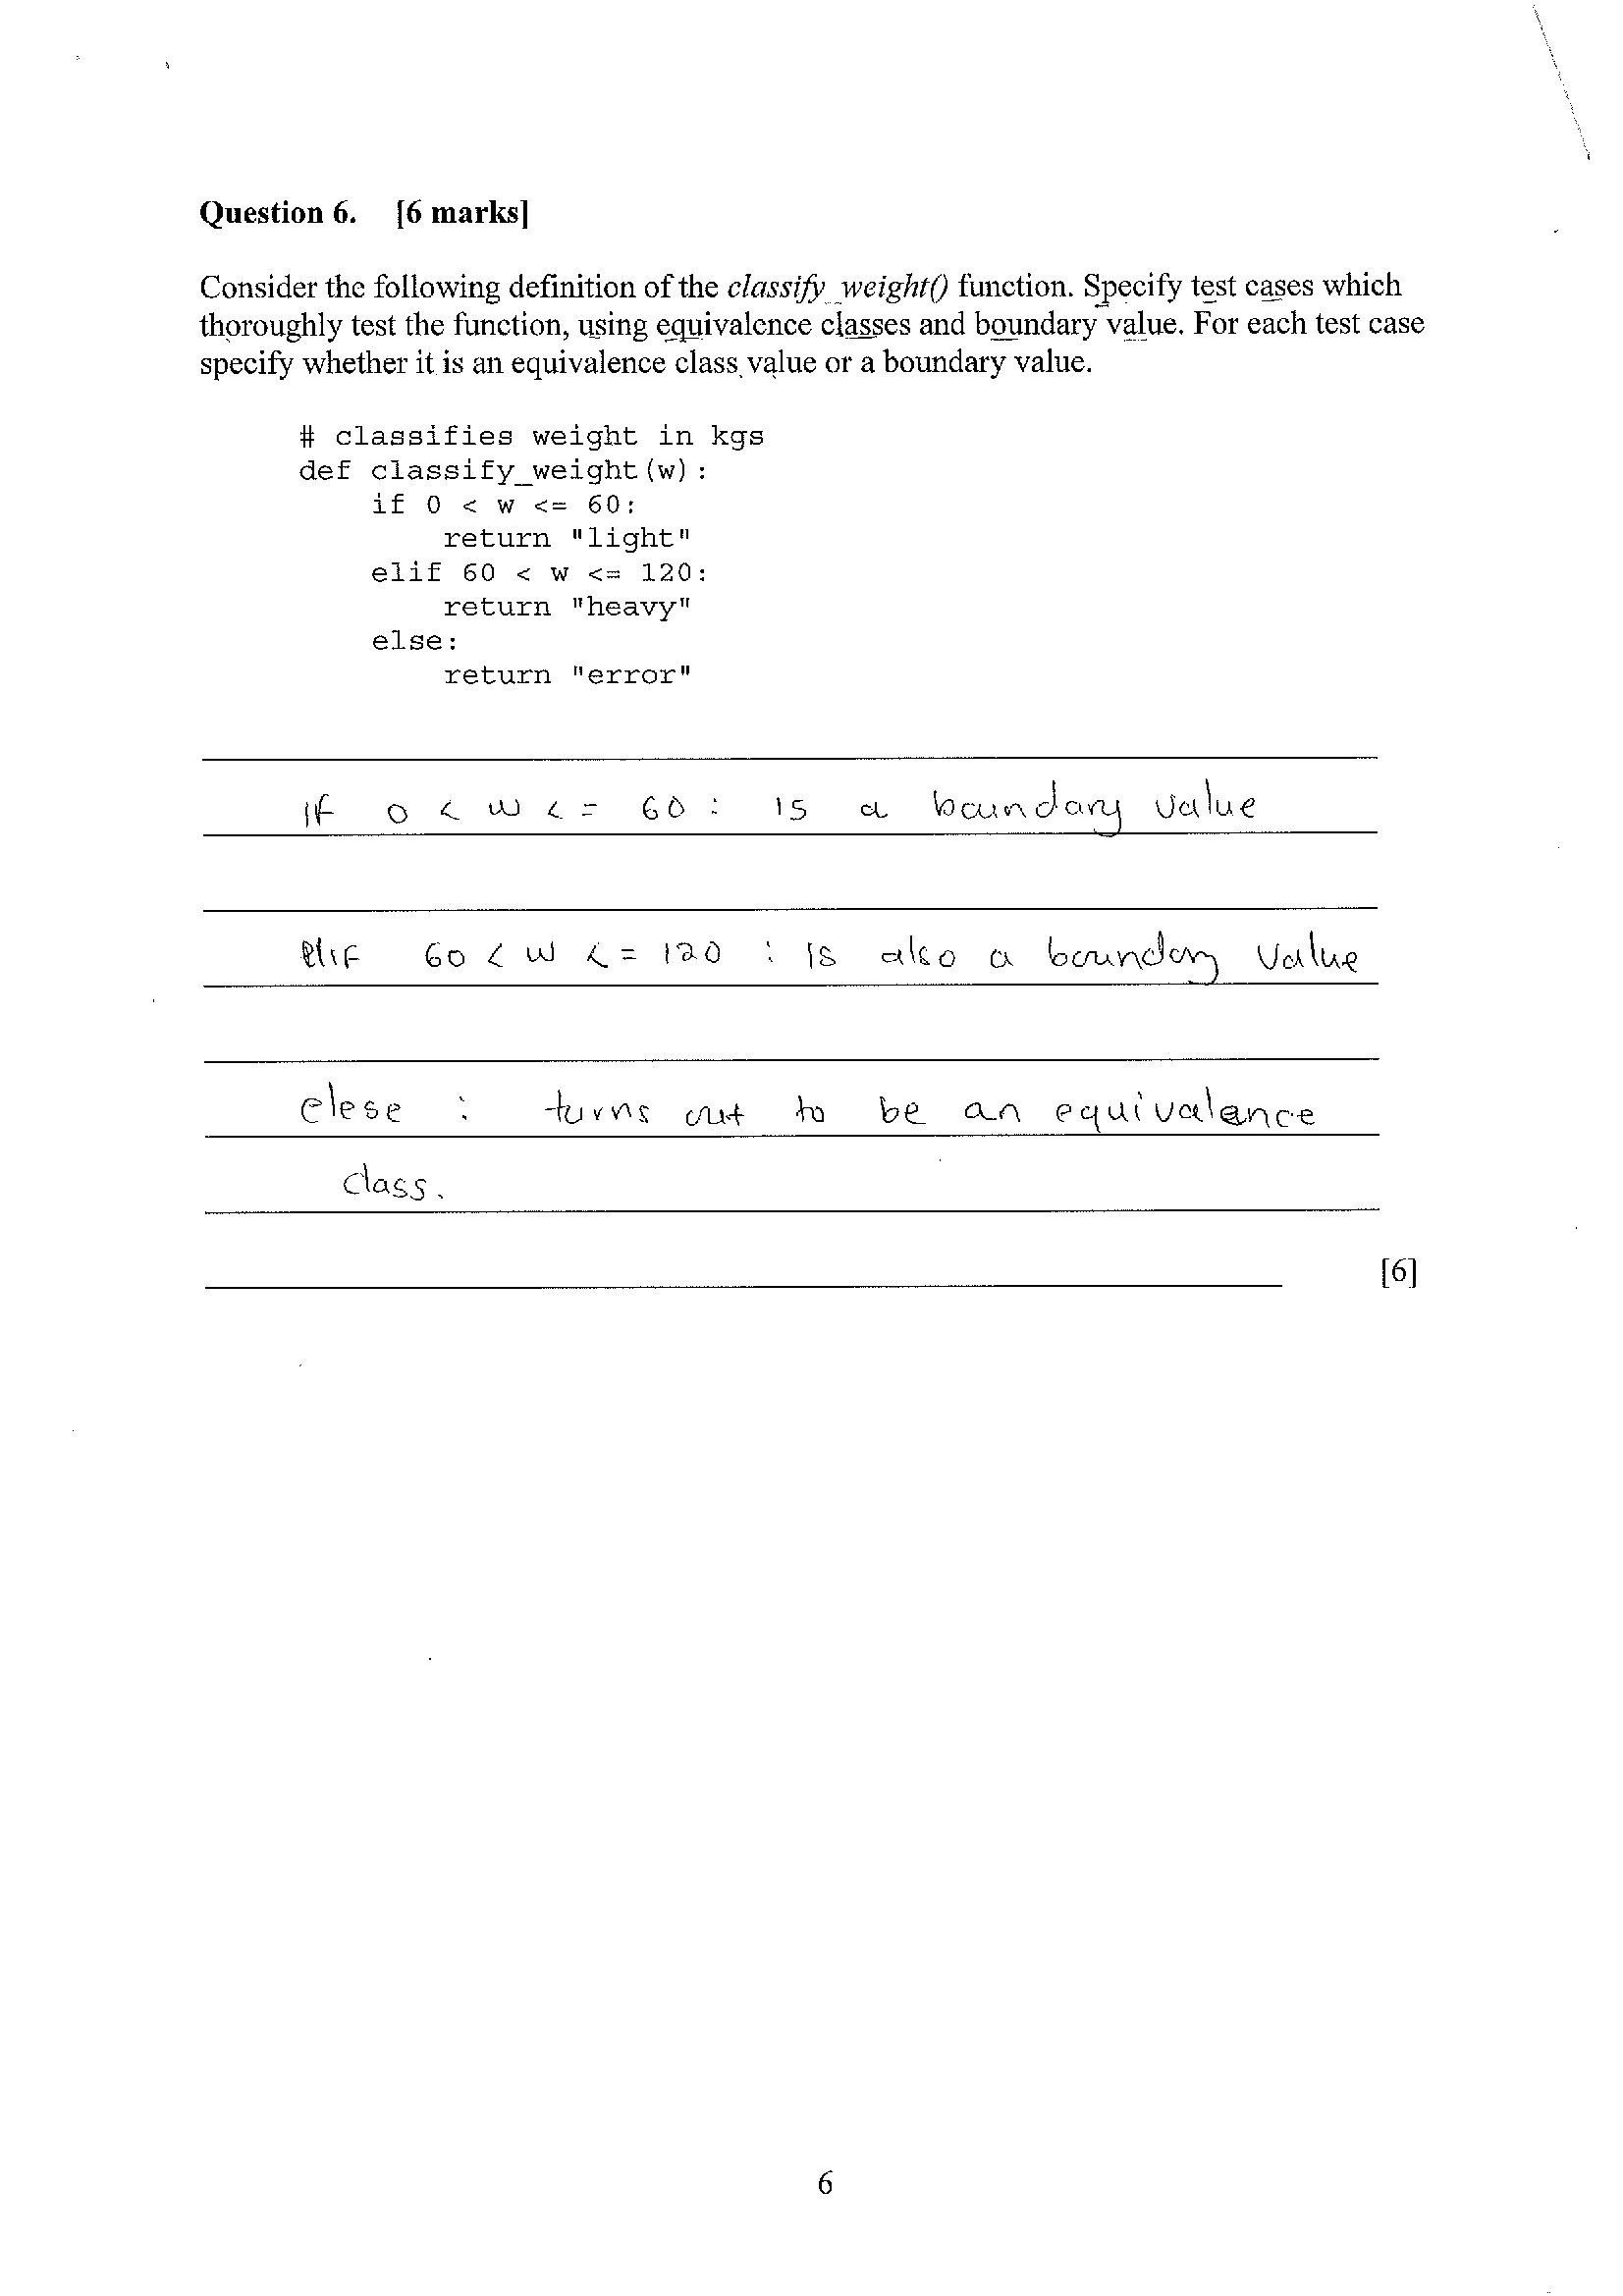 Question 6. [6 marks]
Consider the following definition of the classify_weight() function. Specify test cases which
thoroughly test the function, using equivalence classes and boundary value. For each test case
specify whether it is an equivalence class value or a boundary value.
# classifies weight in kgs
def classify_weight(w):
    if 0 < w <= 60:
        return "light"
    elif 60 < w <= 120:
        return "heavy"
    else:
        return "error"
if 0 < w <= 60 : is a boundary value
elif 60 < w <= 120 : is also a boundary value
elese : turns out to be an equivalance
class.
[6]
6